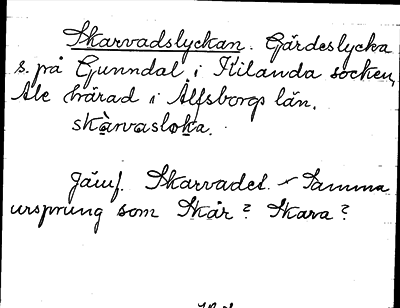 Skarvadslyckan. Gärdeslycka
s. på Gunndal i Kilanda socken,
Ale härad i Älfsborgs län.
skàrvasloka.
Jämf. Skarvadet. Samma
ursprung som Skår? Skara?